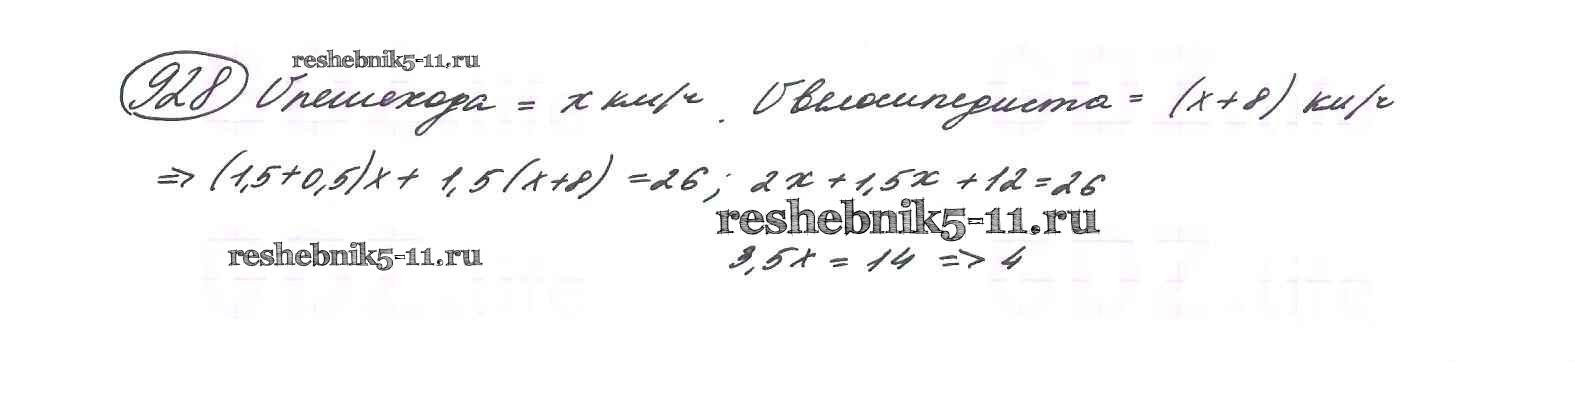 reshebnik5-11.ru
928 Vпешехода = x км/ч. Vвелосипедиста = (x+8) км/ч
=> (1,5+0,5)x + 1,5(x+8) = 26; 2x + 1,5x + 12 = 26
reshebnik5-11.ru
reshebnik5-11.ru 3,5x = 14 => 4